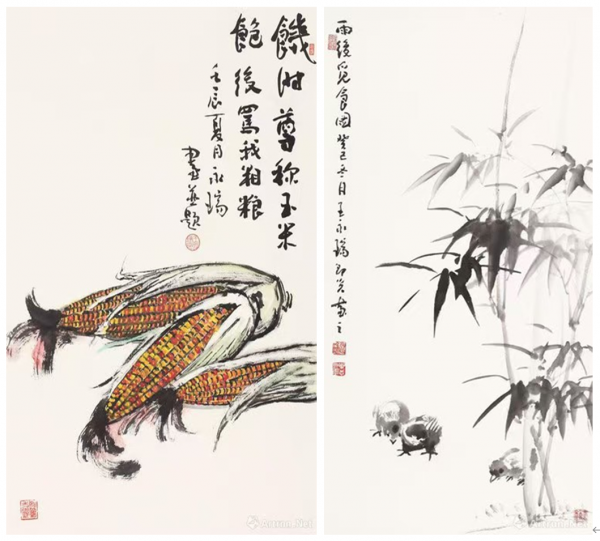 饑时尊称玉米
飽後罵我粗粮
壬辰夏月永瑞
畫並題
雨後覓食图癸巳冬月王永瑞
Artron.Net
Artron.Net